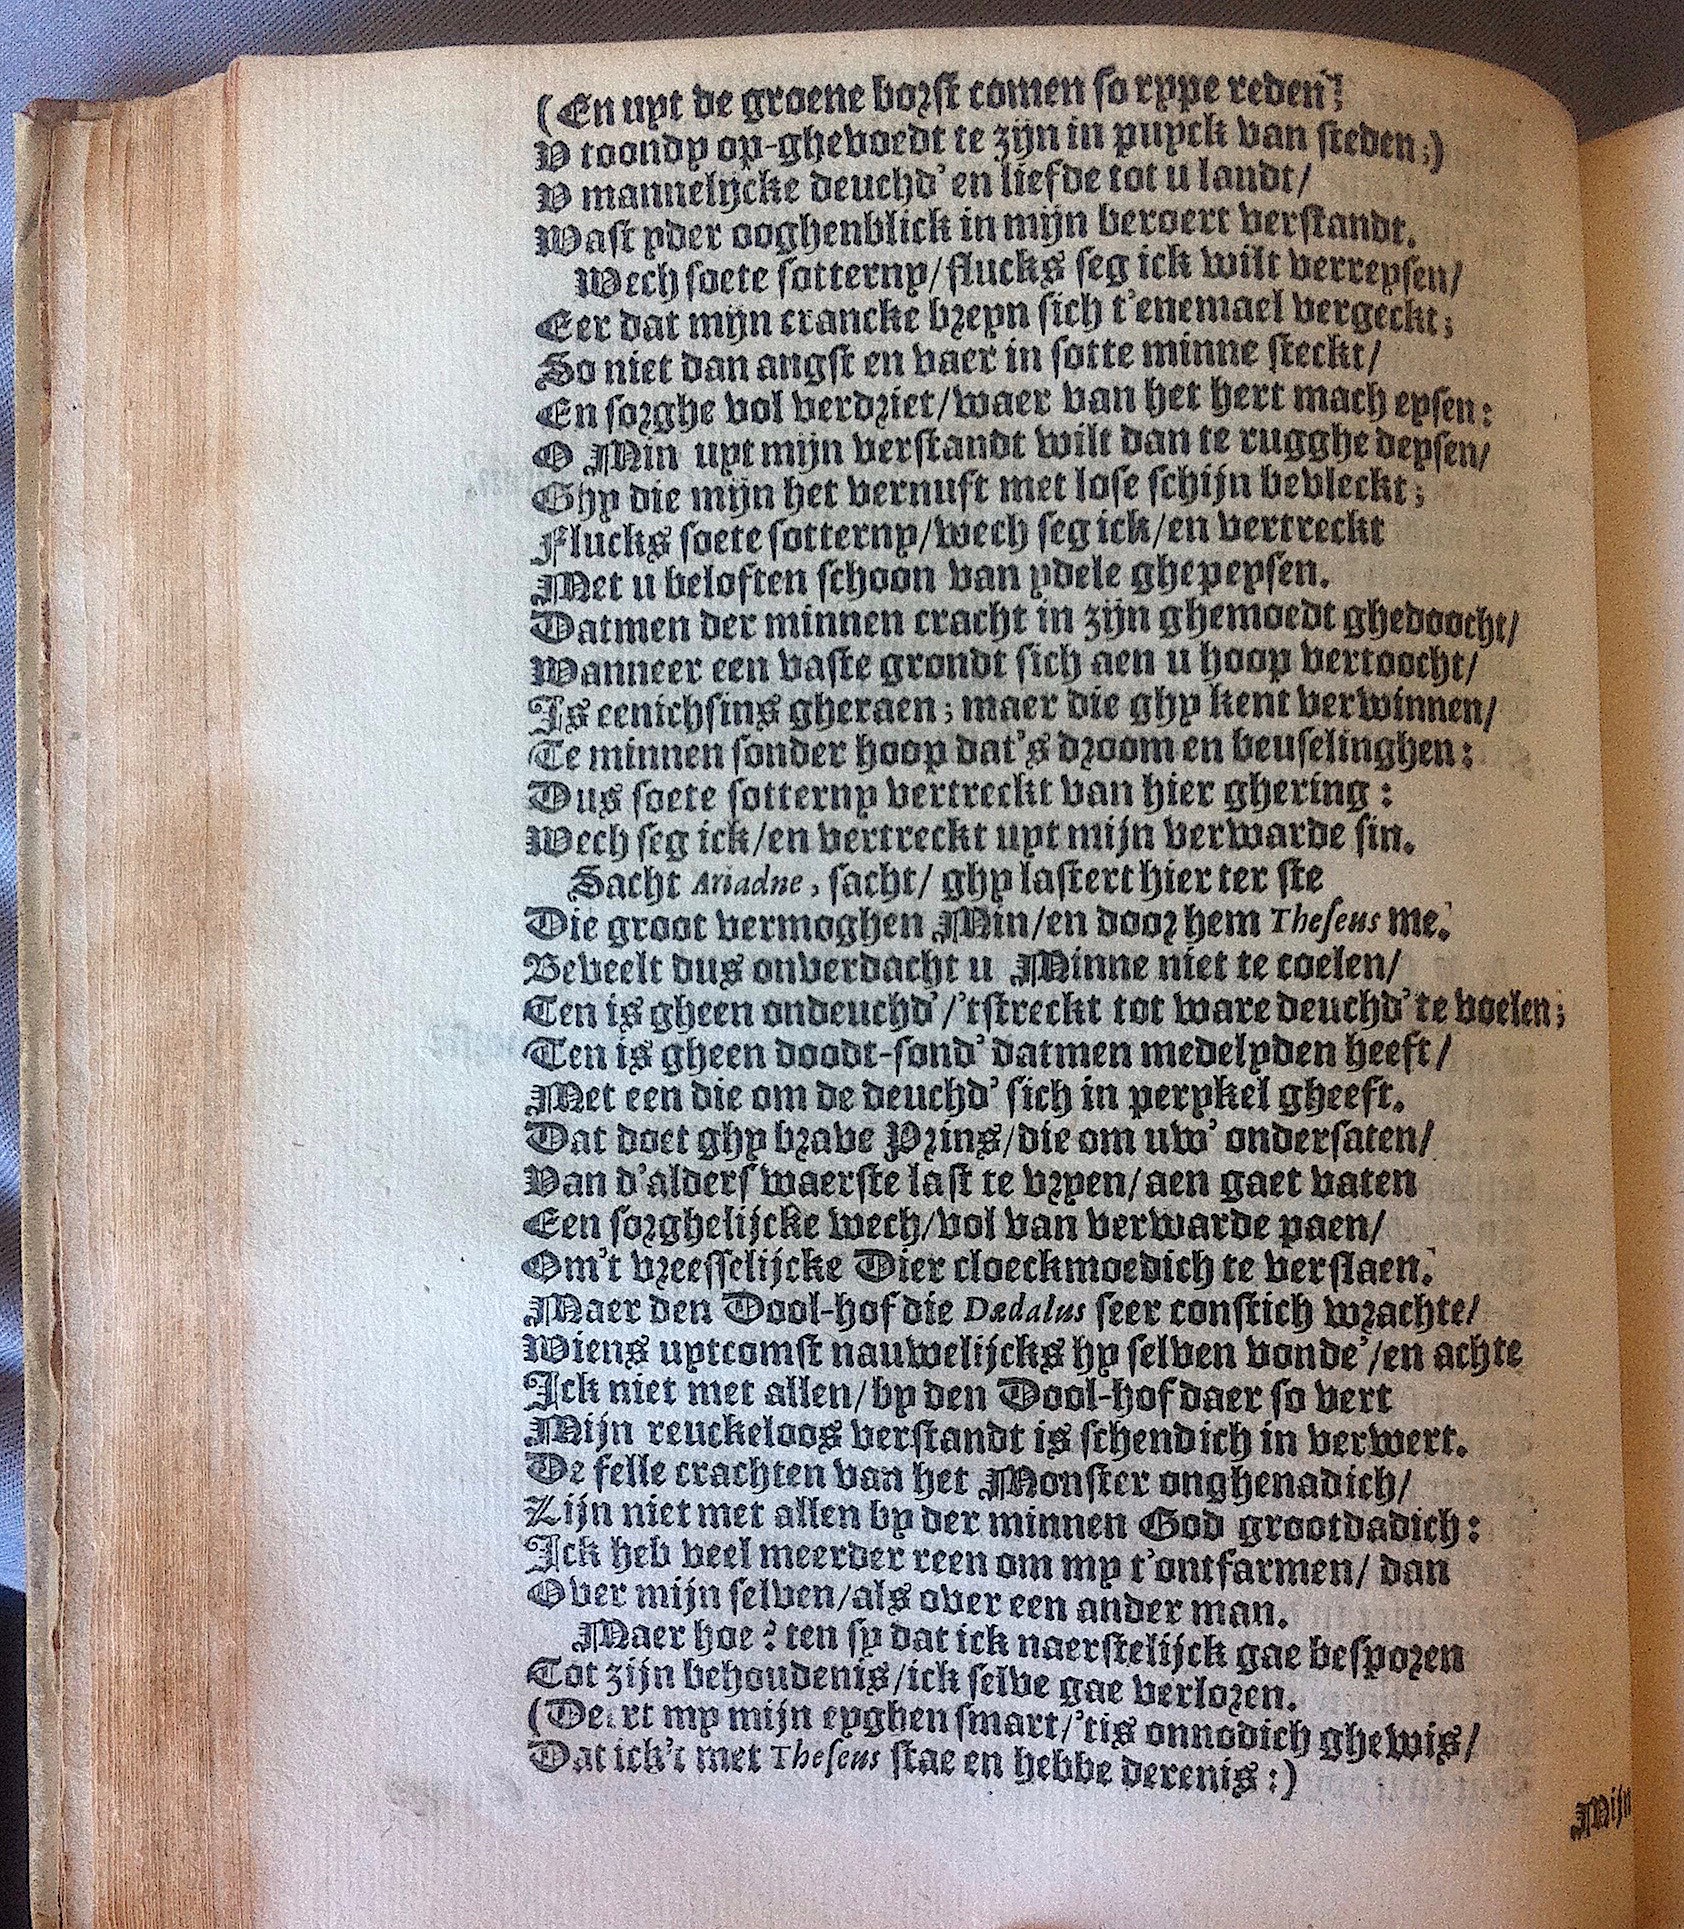 (En uyt de groene borst comen so rype reden;
V toondy op-ghevoedt te zijn in puyck van steden;)
V mannelijcke deuchd' en liefde tot u landt/
Wast yder ooghenblick in mijn beroert verstandt.
Wech soete sotterny/ flucks seg ick wilt verreysen/
Eer dat mijn crancke breyn sich t'enemael vergeckt;
So niet dan angst en vaer in sotte minne steckt/
En sorghe vol verdriet/waer van het hert mach eysen:
O Min uyt mijn verstandt wilt dan te rugghe deysen/
Ghy die mijn het vernuft met lose schijn bevleckt;
Flucks soete sotterny/wech seg ick/en vertreckt
Met u beloften schoon van ydele ghepeysen.
Datmen der minnen cracht in zijn ghemoedt ghedoocht/
Wanneer een vaste grondt sich aen u hoop vertoocht/
Is eenichsins gheraen; maer die ghy kent verwinnen/
Te minnen sonder hoop dat's droom en beuselinghen:
Dus soete sotterny vertreckt van hier ghering:
Wech seg ick/en vertreckt uyt mijn verwarde sin.
Sacht Ariadne, sacht/ ghy lastert hier ter ste
Die groot vermoghen Min/en door hem Theseus me.
Beveelt dus onverdacht u Minne niet te coelen/
Ten is gheen ondeuchd'/'tstreckt tot ware deuchd' te voelen;
Ten is gheen doodt-sond' datmen medelyden heeft/
Met een die om de deuchd' sich in perykel gheeft.
Dat doet ghy brave Prins/die om uw' ondersaten/
Van d'alderswaerste last te vryen/aen gaet vaten
Een sorghelijcke wech/vol van verwarde paen/
Om't vreesselijcke Dier cloeckmoedich te verslaen.
Maer den Dool-hof die Dædalus seer constich wrachte/
Wiens uytcomst nauwelijcks hy selven vonde'/en achte
Ick niet met allen/by den Dool-hof daer so vert
Mijn reuckeloos verstandt is schendich in verwert.
De felle crachten van het Monster onghenadich/
Zijn niet met allen by der minnen God grootdadich:
Ick heb veel meerder reen om my t'ontfarmen/ dan
Over mijn selven/als over een ander man.
Maer hoe? ten sy dat ick naerstelijck gae besporen
Tot zijn behoudenis/ick selve gae verloren.
(Deert my mijn eyghen smart/'tis onnodich ghewis/
Dat ick't met Theseus stae en hebbe derenis:)
Mijn